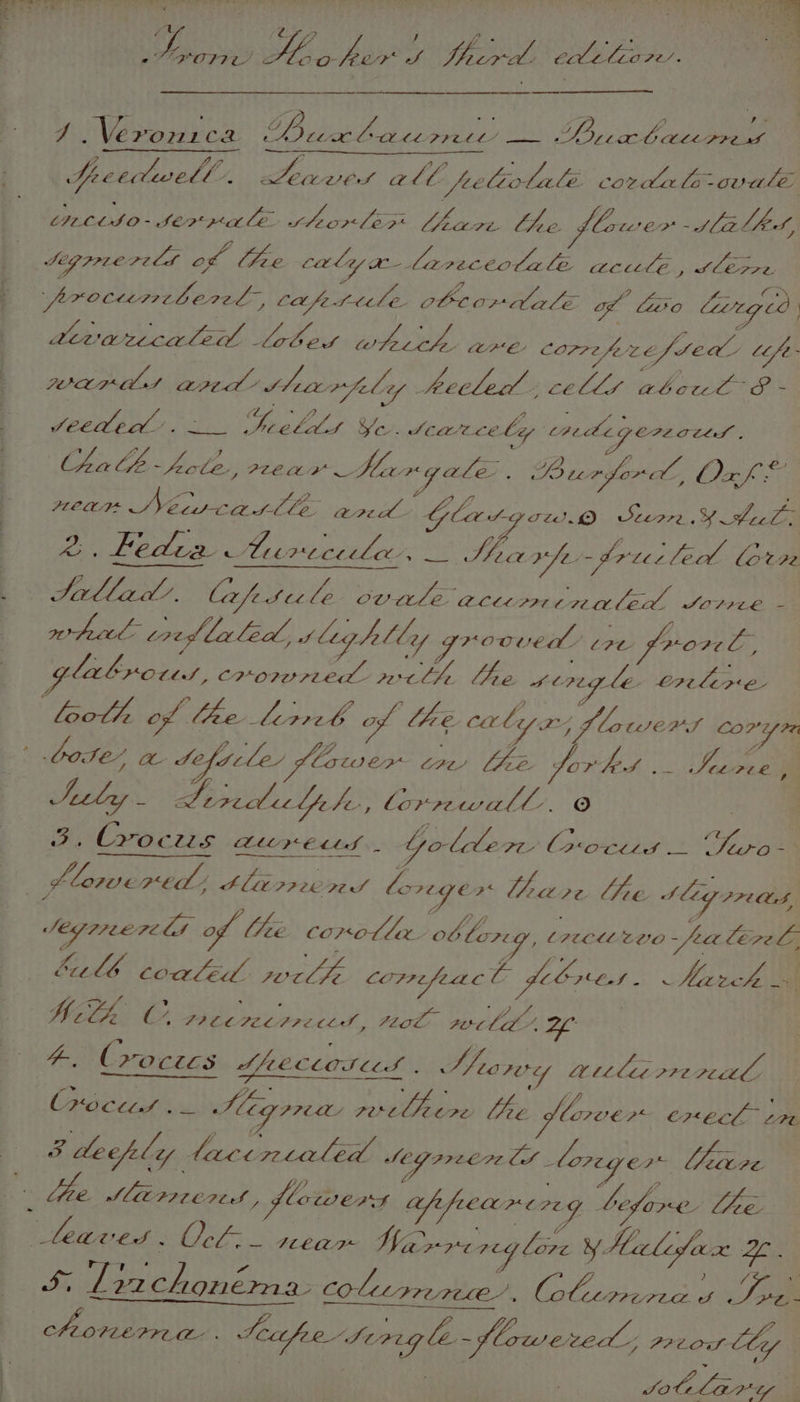 From Hooker's third edition.
1. Veronica Buxbaumii — Buxbaums
Speedwell. Leaves all petiolate cordato-ovate
inciso-serrate shorter than the flower-stalks,
segments of the calyx lanceolate acute, stem
procumbent, capsule obcordate of two turgid
divaricated lobes which are compressed up-
wards and sharply keeled, cells about 8-
seeded. — Fields &c. scarcely indigenous.
Chalk-hole, near Margate. Burford, Oxfd.
near Newcastle and Glasgow. ʘ Sum. & Aut.
2. Fedia Auricula, — Sharp-fruited Corn
Sallad. Capsule ovate acuminated some-
what inflated, slightly grooved in front,
glabrous, crowned with the single entire
tooth of the limb of the calyx, flowers corym
bose, a sessile flower in the forks .— June,
July - Lindulph, Cornwall. ʘ
3. Crocus aureus. Golden Crocus — Two-
flowered, stamens longer than the stigmas,
segments of the corolla oblong, incurvo-patent,
bulb coated with compact fibres. March —
With C. minimus, not wild. ♃
4. Crocus speciosus. Showy autumnal
Crocus .— Stigma within the flower erect in
3 deeply laciniated segments longer than
the stamens, flowers appearing before the
leaves. Oct. — near Warrington & Halifax ♃.
5. Trichonema columnæ. Columna's Tri-
chonema. Scape single-flowered, mostly
solitary